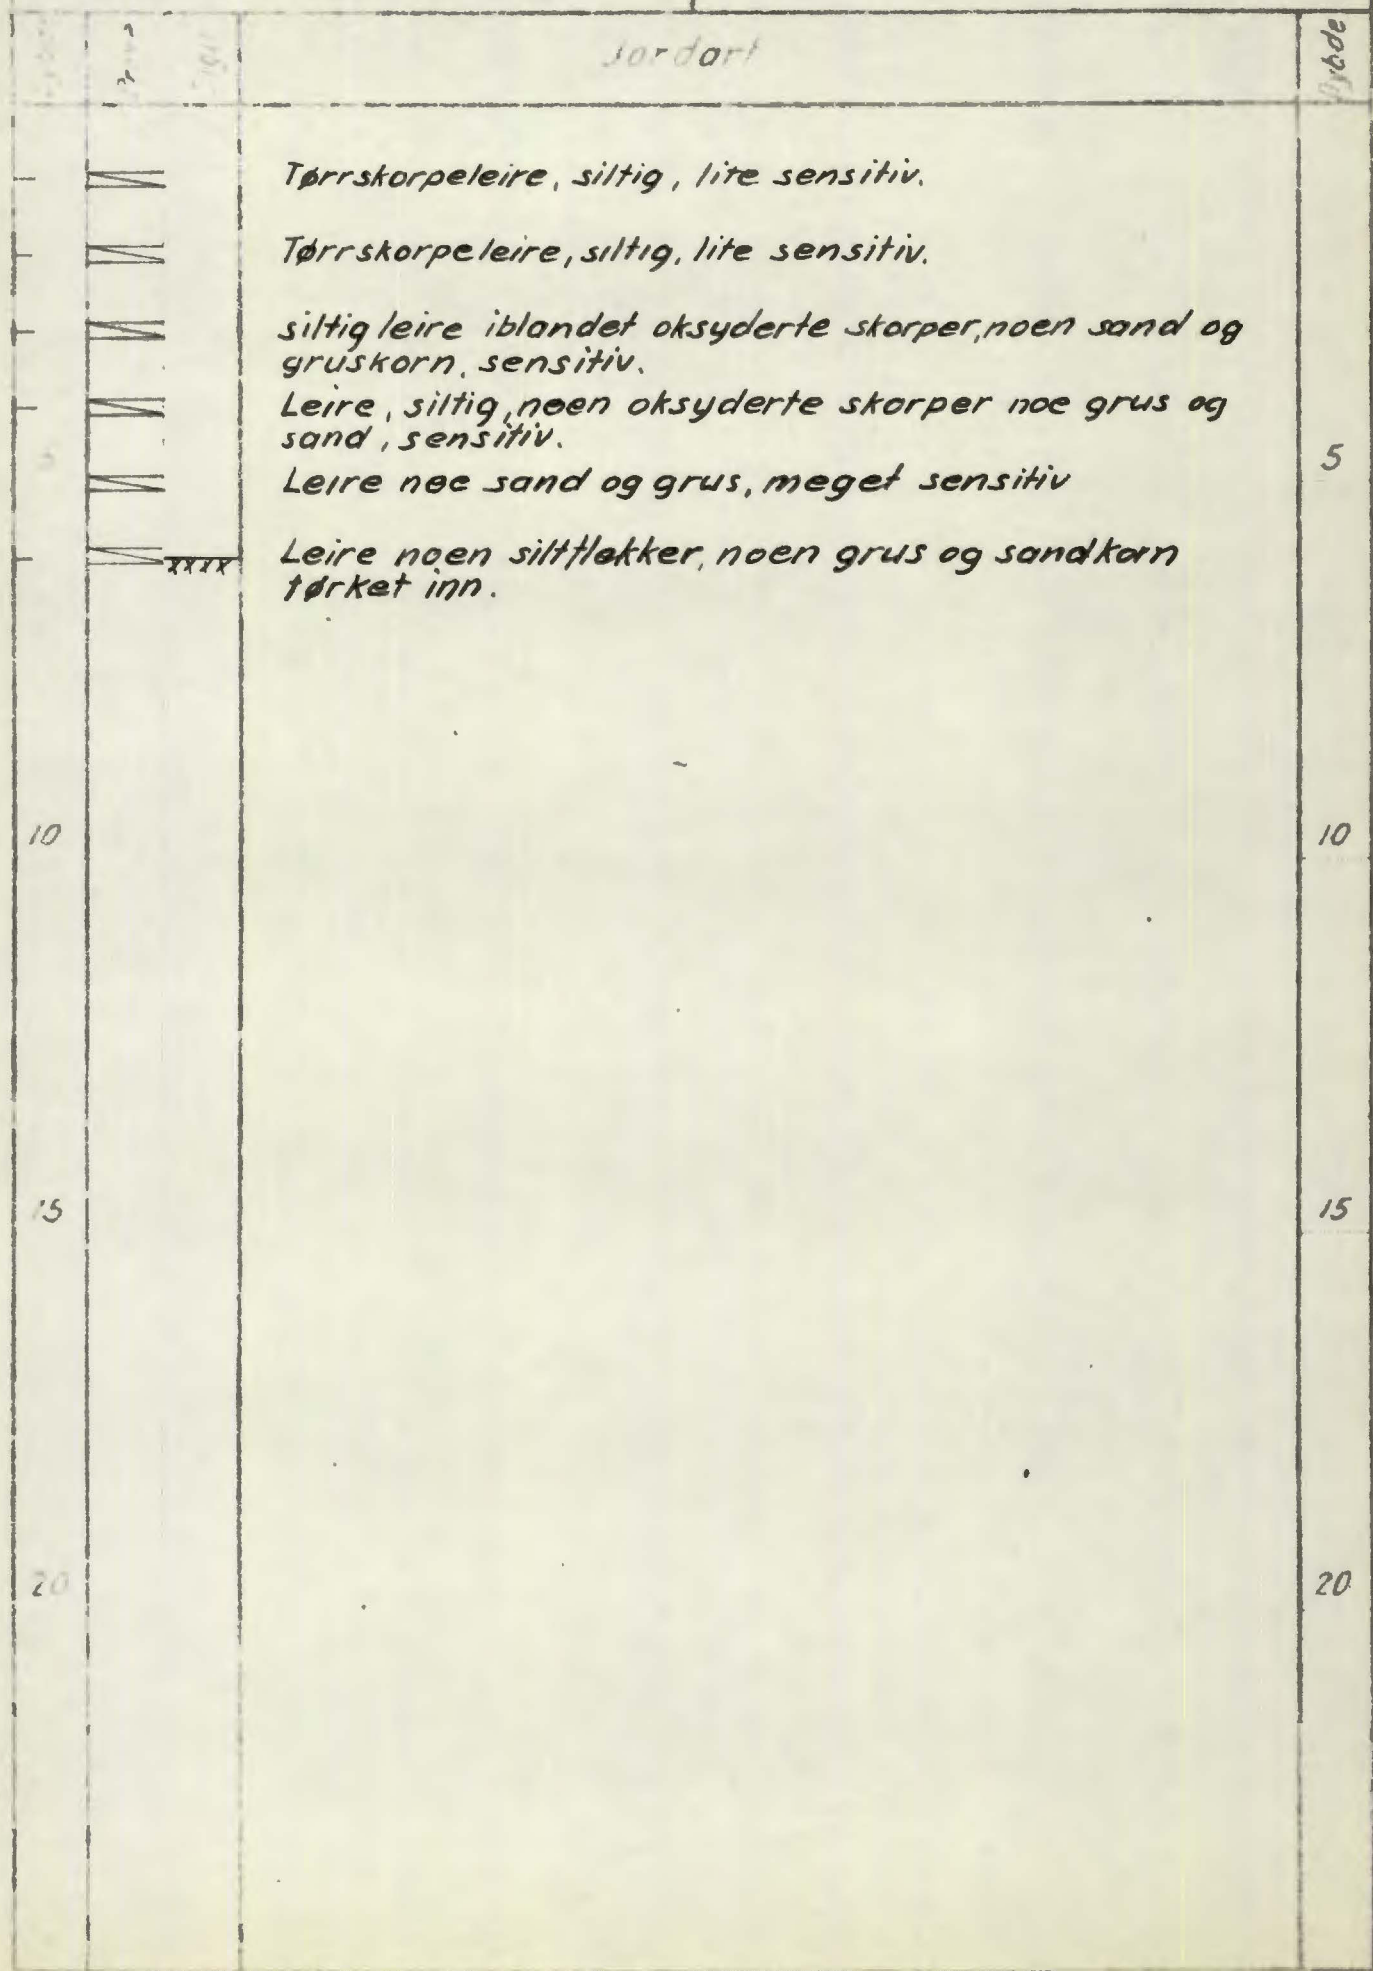 Jordart
Dybde
Tørrskorpeleire, siltig, lite sensitiv.
Tørrskorpeleire, siltig, lite sensitiv.
siltig leire iblandet oksyderte skorper, noen sand og
gruskorn, sensitiv.
Leire, siltig, noen oksyderte skorper noe grus og
sand, sensitiv.
5
Leire noe sand og grus, meget sensitiv
Leire noen siltflekker, noen grus og sandkorn
tørket inn.
10
10
15
15
20
20